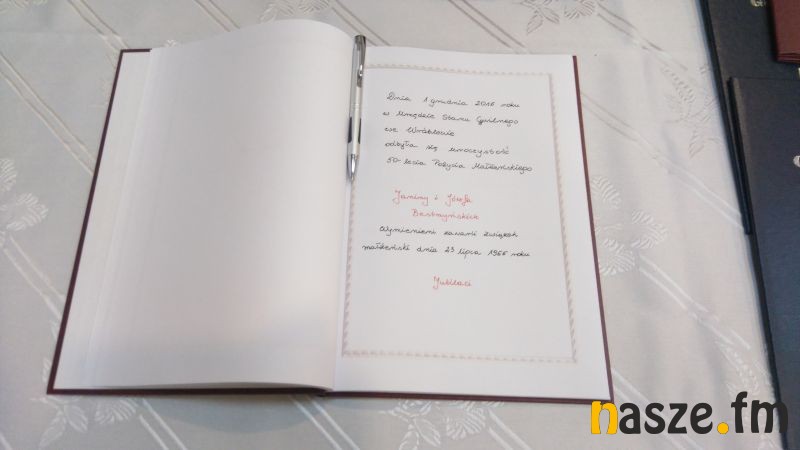 Dnia 1 grudnia 2016 roku
w Urzędzie Stanu Cywilnego
we Wróblewie
odbyła się uroczystość
50-lecia Pożycia Małżeńskiego
Janiny i Józefa
Wymienieni zawarli związek
małżeński dnia 23 lipca 1966 roku
Jubilaci
nasze.fm